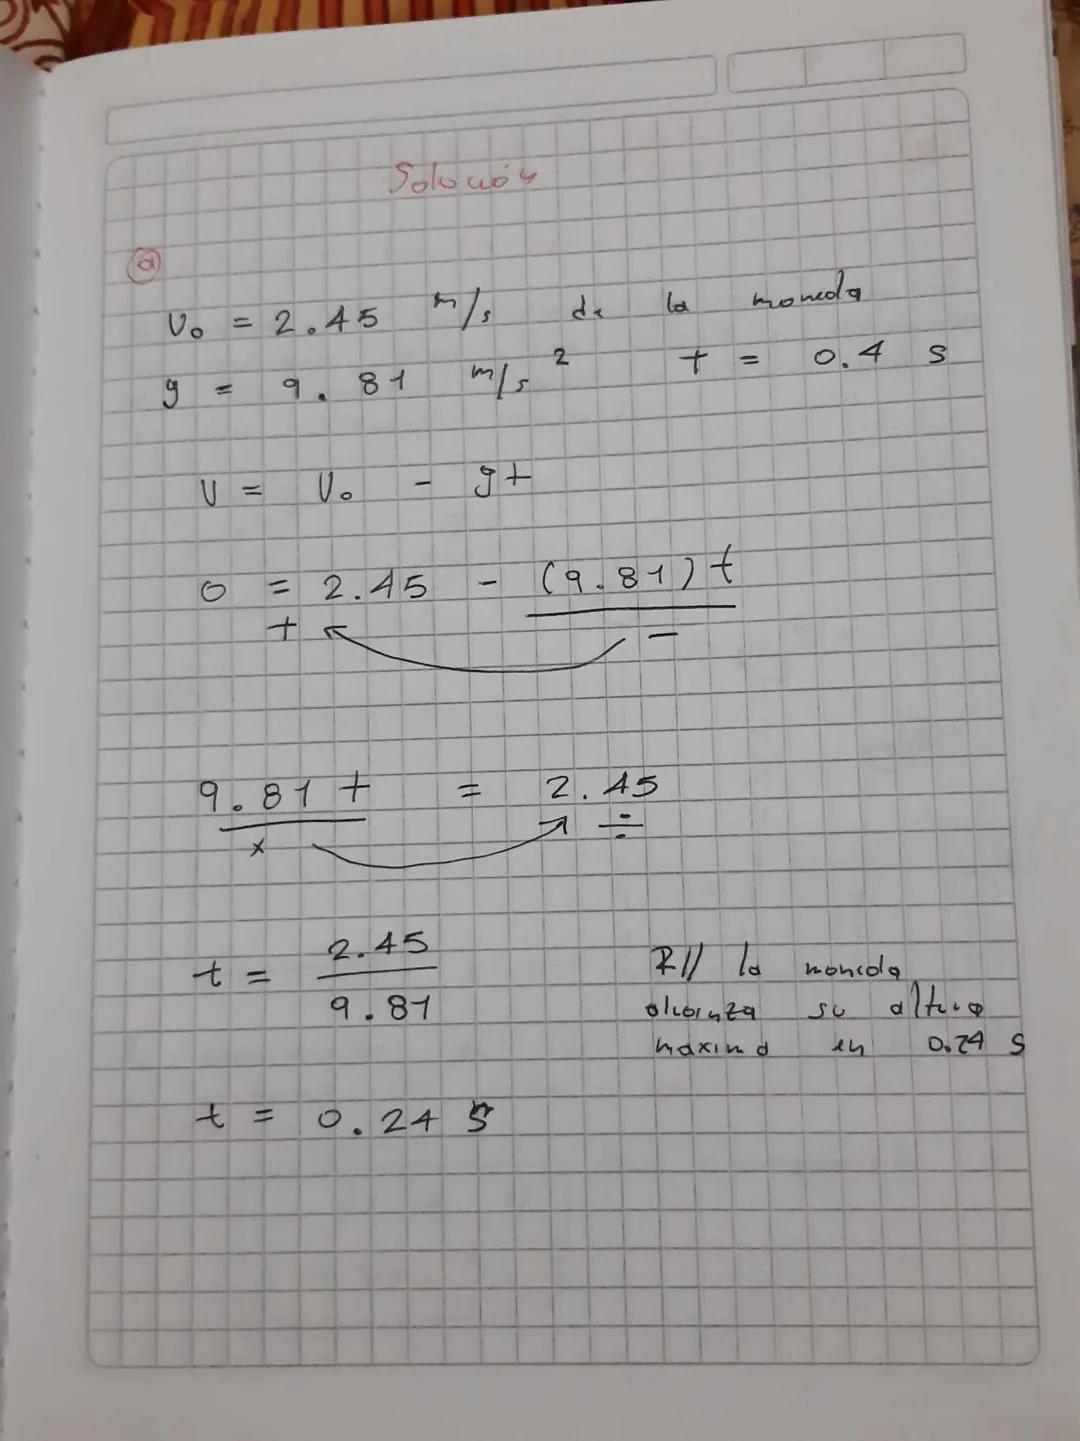 Solución
a
V₀ = 2.45 m/s de la moneda
g = 9.81 m/s² t = 0.4 s
V = V₀ - gt
0 = 2.45 - (9.81) t
+ -
9.81 t = 2.45
x ÷
t = 2.45 / 9.81
R// la moneda
alcanza su altura
maxima en 0.24 s
t = 0.24 s